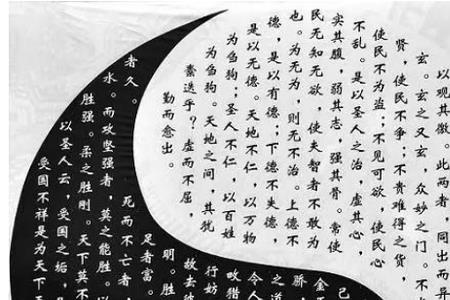 以观其徼。此两者,同出而异
玄。玄之又玄,众妙之门。不
贤,使民不争;不贵难得之货,
使民不为盗;不见可欲,使民心
不乱。是以圣人之治,虚其心,
实其腹,弱其志,强其骨。常使
民无知无欲,使夫智者不敢为
也。为无为,则无不治。上德不
德,是以有德;下德不失德,
是以无德。天地不仁,以万物
为刍狗;圣人不仁,以百姓
为刍狗。天地之间,其犹
橐迭乎?虚而不屈,
勤而愈出。
己
金
骄
之道
令人
畋猎
行妨
故去彼
明。胜
足者富。
死而不亡者
者久。
水。而攻坚强者,莫之能胜。以
胜强。柔之胜刚。天下莫不
以圣人云,受国之垢,是
受国不祥是为天下